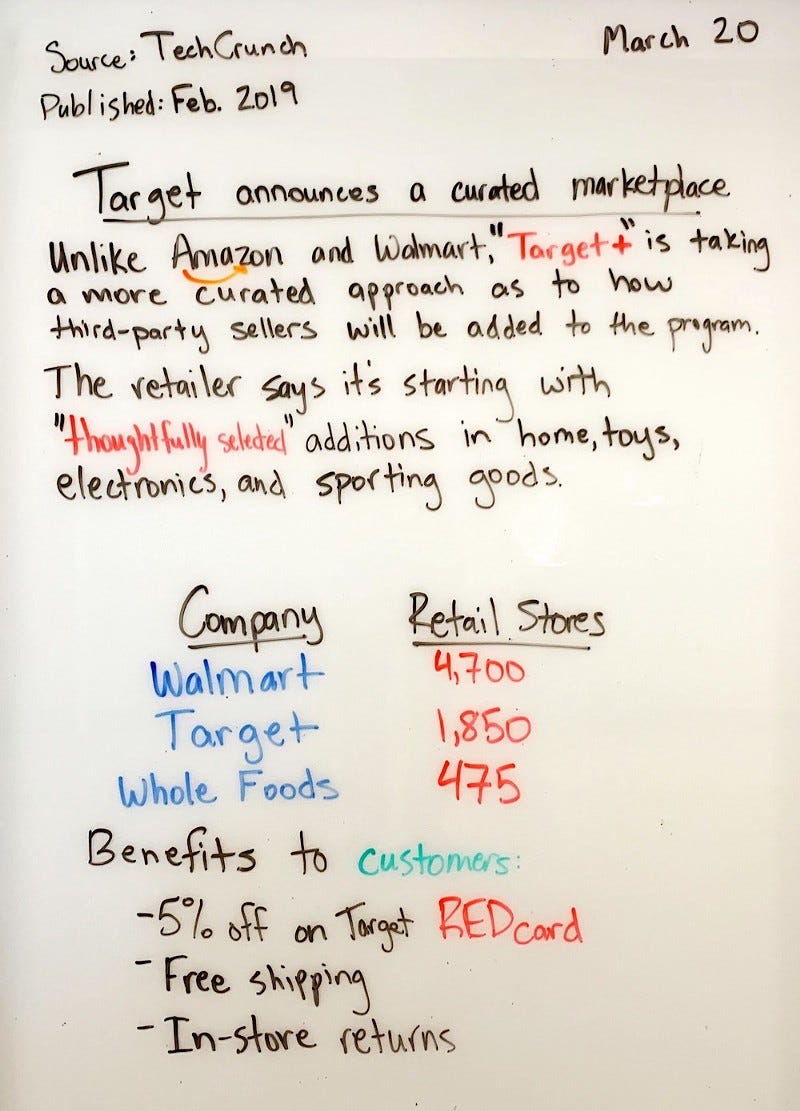 Source: TechCrunch
March 20
Published: Feb. 2019
Target announces a curated marketplace
Unlike Amazon and Walmart, "Target+" is taking
a more curated approach as to how
third-party sellers will be added to the program.
The retailer says it's starting with
"thoughtfully selected" additions in home, toys,
electronics, and sporting goods.
Company Retail Stores
Walmart 4,700
Target 1,850
Whole Foods 475
Benefits to customers:
-5% off on Target REDcard
- Free shipping
- In-store returns